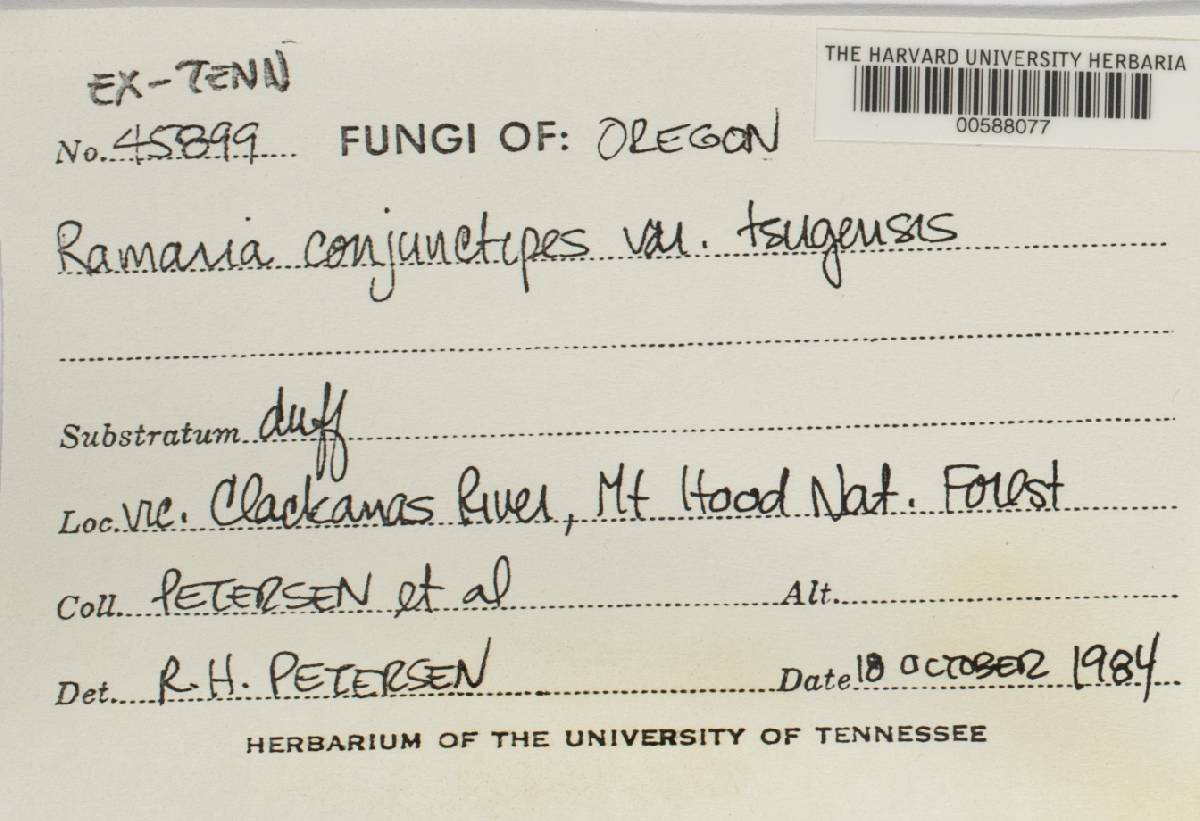 EX-TENN
THE HARVARD UNIVERSITY HERBARIA
00588077
No. 45899 FUNGI OF: OREGON
Ramaria conjunctipes var. tsugensis
Substratum duff
Loc. vic. Clackamas River, Mt Hood Nat. Forest
Coll. PETERSEN et al Alt.
Det. R.H. PETERSEN Date 18 OCTOBER 1984
HERBARIUM OF THE UNIVERSITY OF TENNESSEE